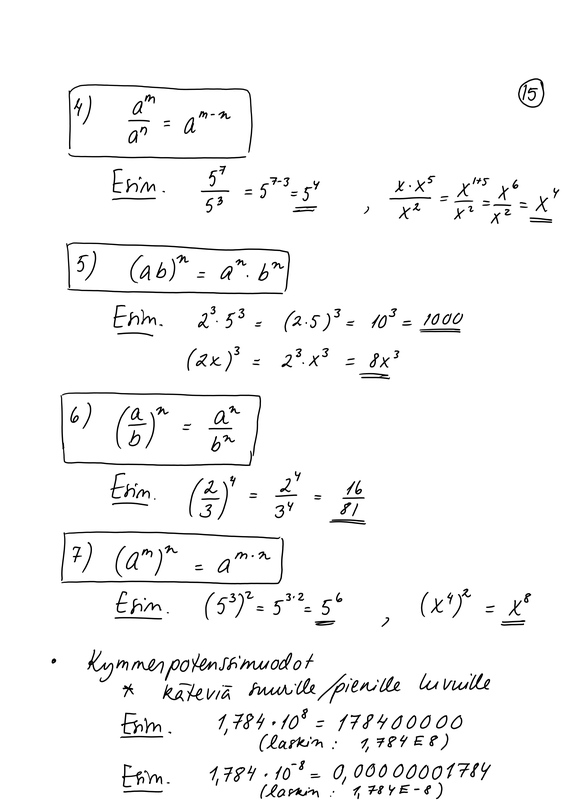 15
4) a^m/a^n = a^(m-n)
Esim. 5^7/5^3 = 5^(7-3) = 5^4 , x·x^5/x^2 = x^(1+5)/x^2 = x^6/x^2 = x^4
5) (ab)^n = a^n · b^n
Esim. 2^3 · 5^3 = (2·5)^3 = 10^3 = 1000
(2x)^3 = 2^3 · x^3 = 8x^3
6) (a/b)^n = a^n/b^n
Esim. (2/3)^4 = 2^4/3^4 = 16/81
7) (a^m)^n = a^(m·n)
Esim. (5^3)^2 = 5^(3·2) = 5^6 , (x^4)^2 = x^8
• Kymmenpotenssimuodot
* käteviä suurille/pienille luvuille
Esim. 1,784 · 10^8 = 178400000
(laskin: 1,784E8)
Esim. 1,784 · 10^-8 = 0,00000001784
(laskin: 1,784E-8)